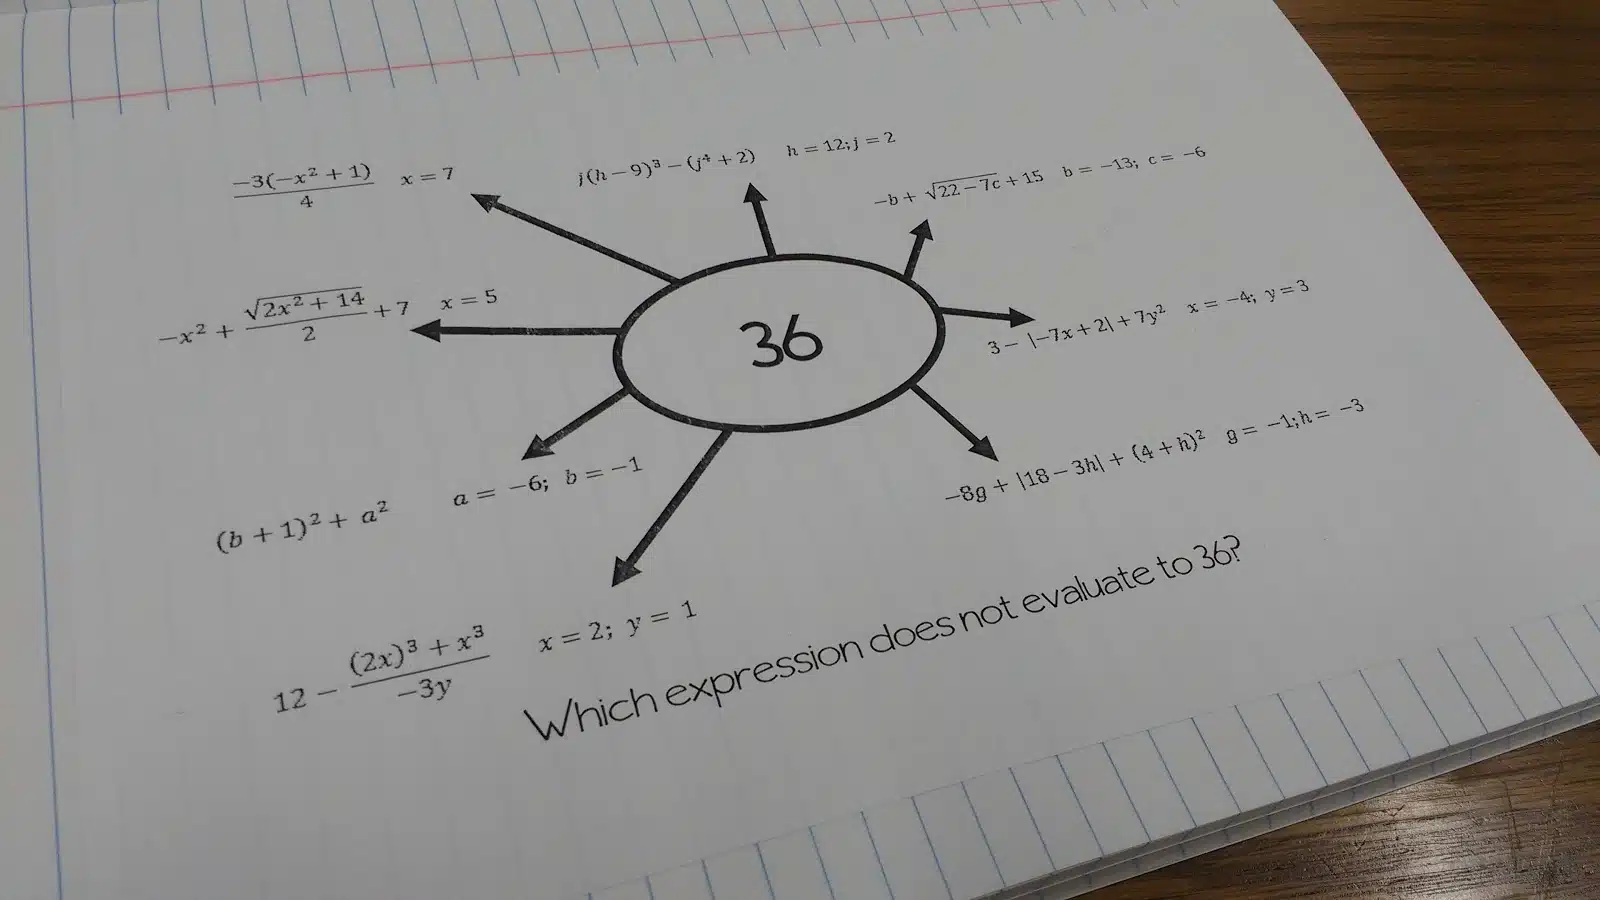 −3(−x² + 1)/4 x = 7
j(h − 9)³ − (j⁴ + 2) h = 12; j = 2
−b + √(22 − 7c) + 15 b = −13; c = −6
−x² + √(2x² + 14)/2 + 7 x = 5
36
3 − |−7x + 2| + 7y² x = −4; y = 3
(b + 1)² + a² a = −6; b = −1
−8g + |18 − 3h| + (4 + h)² g = −1; h = −3
12 − ((2x)³ + x³)/(−3y) x = 2; y = 1
Which expression does not evaluate to 36?